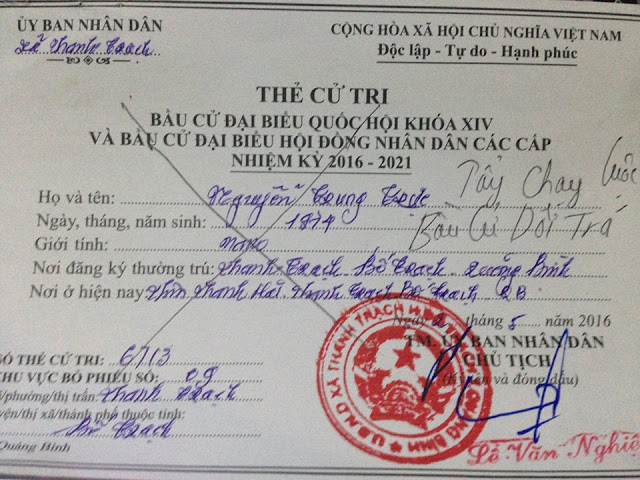 ỦY BAN NHÂN DÂN
Xã Thanh Trạch
CỘNG HÒA XÃ HỘI CHỦ NGHĨA VIỆT NAM
Độc lập - Tự do - Hạnh phúc
THẺ CỬ TRI
BẦU CỬ ĐẠI BIỂU QUỐC HỘI KHÓA XIV
VÀ BẦU CỬ ĐẠI BIỂU HỘI ĐỒNG NHÂN DÂN CÁC CẤP
NHIỆM KỲ 2016 - 2021
Họ và tên: Nguyễn Trung Trực
Tẩy Chay Cuộc
Bầu Cử Dối Trá
Ngày, tháng, năm sinh: 1974
Giới tính: nam
Nơi đăng ký thường trú: Thanh Trạch Bố Trạch Quảng Bình
Nơi ở hiện nay Thanh Hải Thanh Trạch Bố Trạch QB
Ngày 2 tháng 5 năm 2016
TM. ỦY BAN NHÂN DÂN
CHỦ TỊCH
(Ký tên và đóng dấu)
SỐ THẺ CỬ TRI: 6713
KHU VỰC BỎ PHIẾU SỐ: 09
/phường/thị trấn: Thanh Trạch
yện/thị xã/thành phố thuộc tỉnh:
Bố Trạch
Quảng Bình
U.B.N.D XÃ THANH TRẠCH
Lê Văn Nghiệ